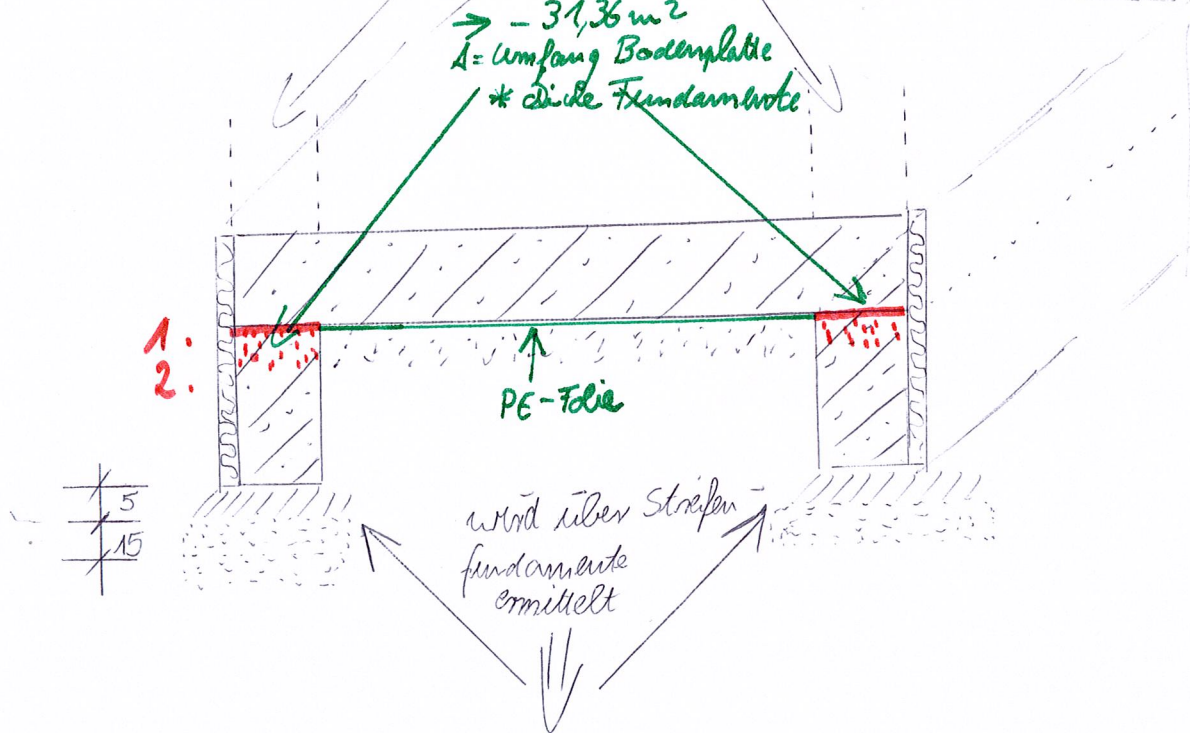 → - 31,36 m²
A = Umfang Bodenplatte
* Dicke Fundamente
1.
2.
PE-Folie
5
15
wird über Streifen-
fundamente
ermittelt